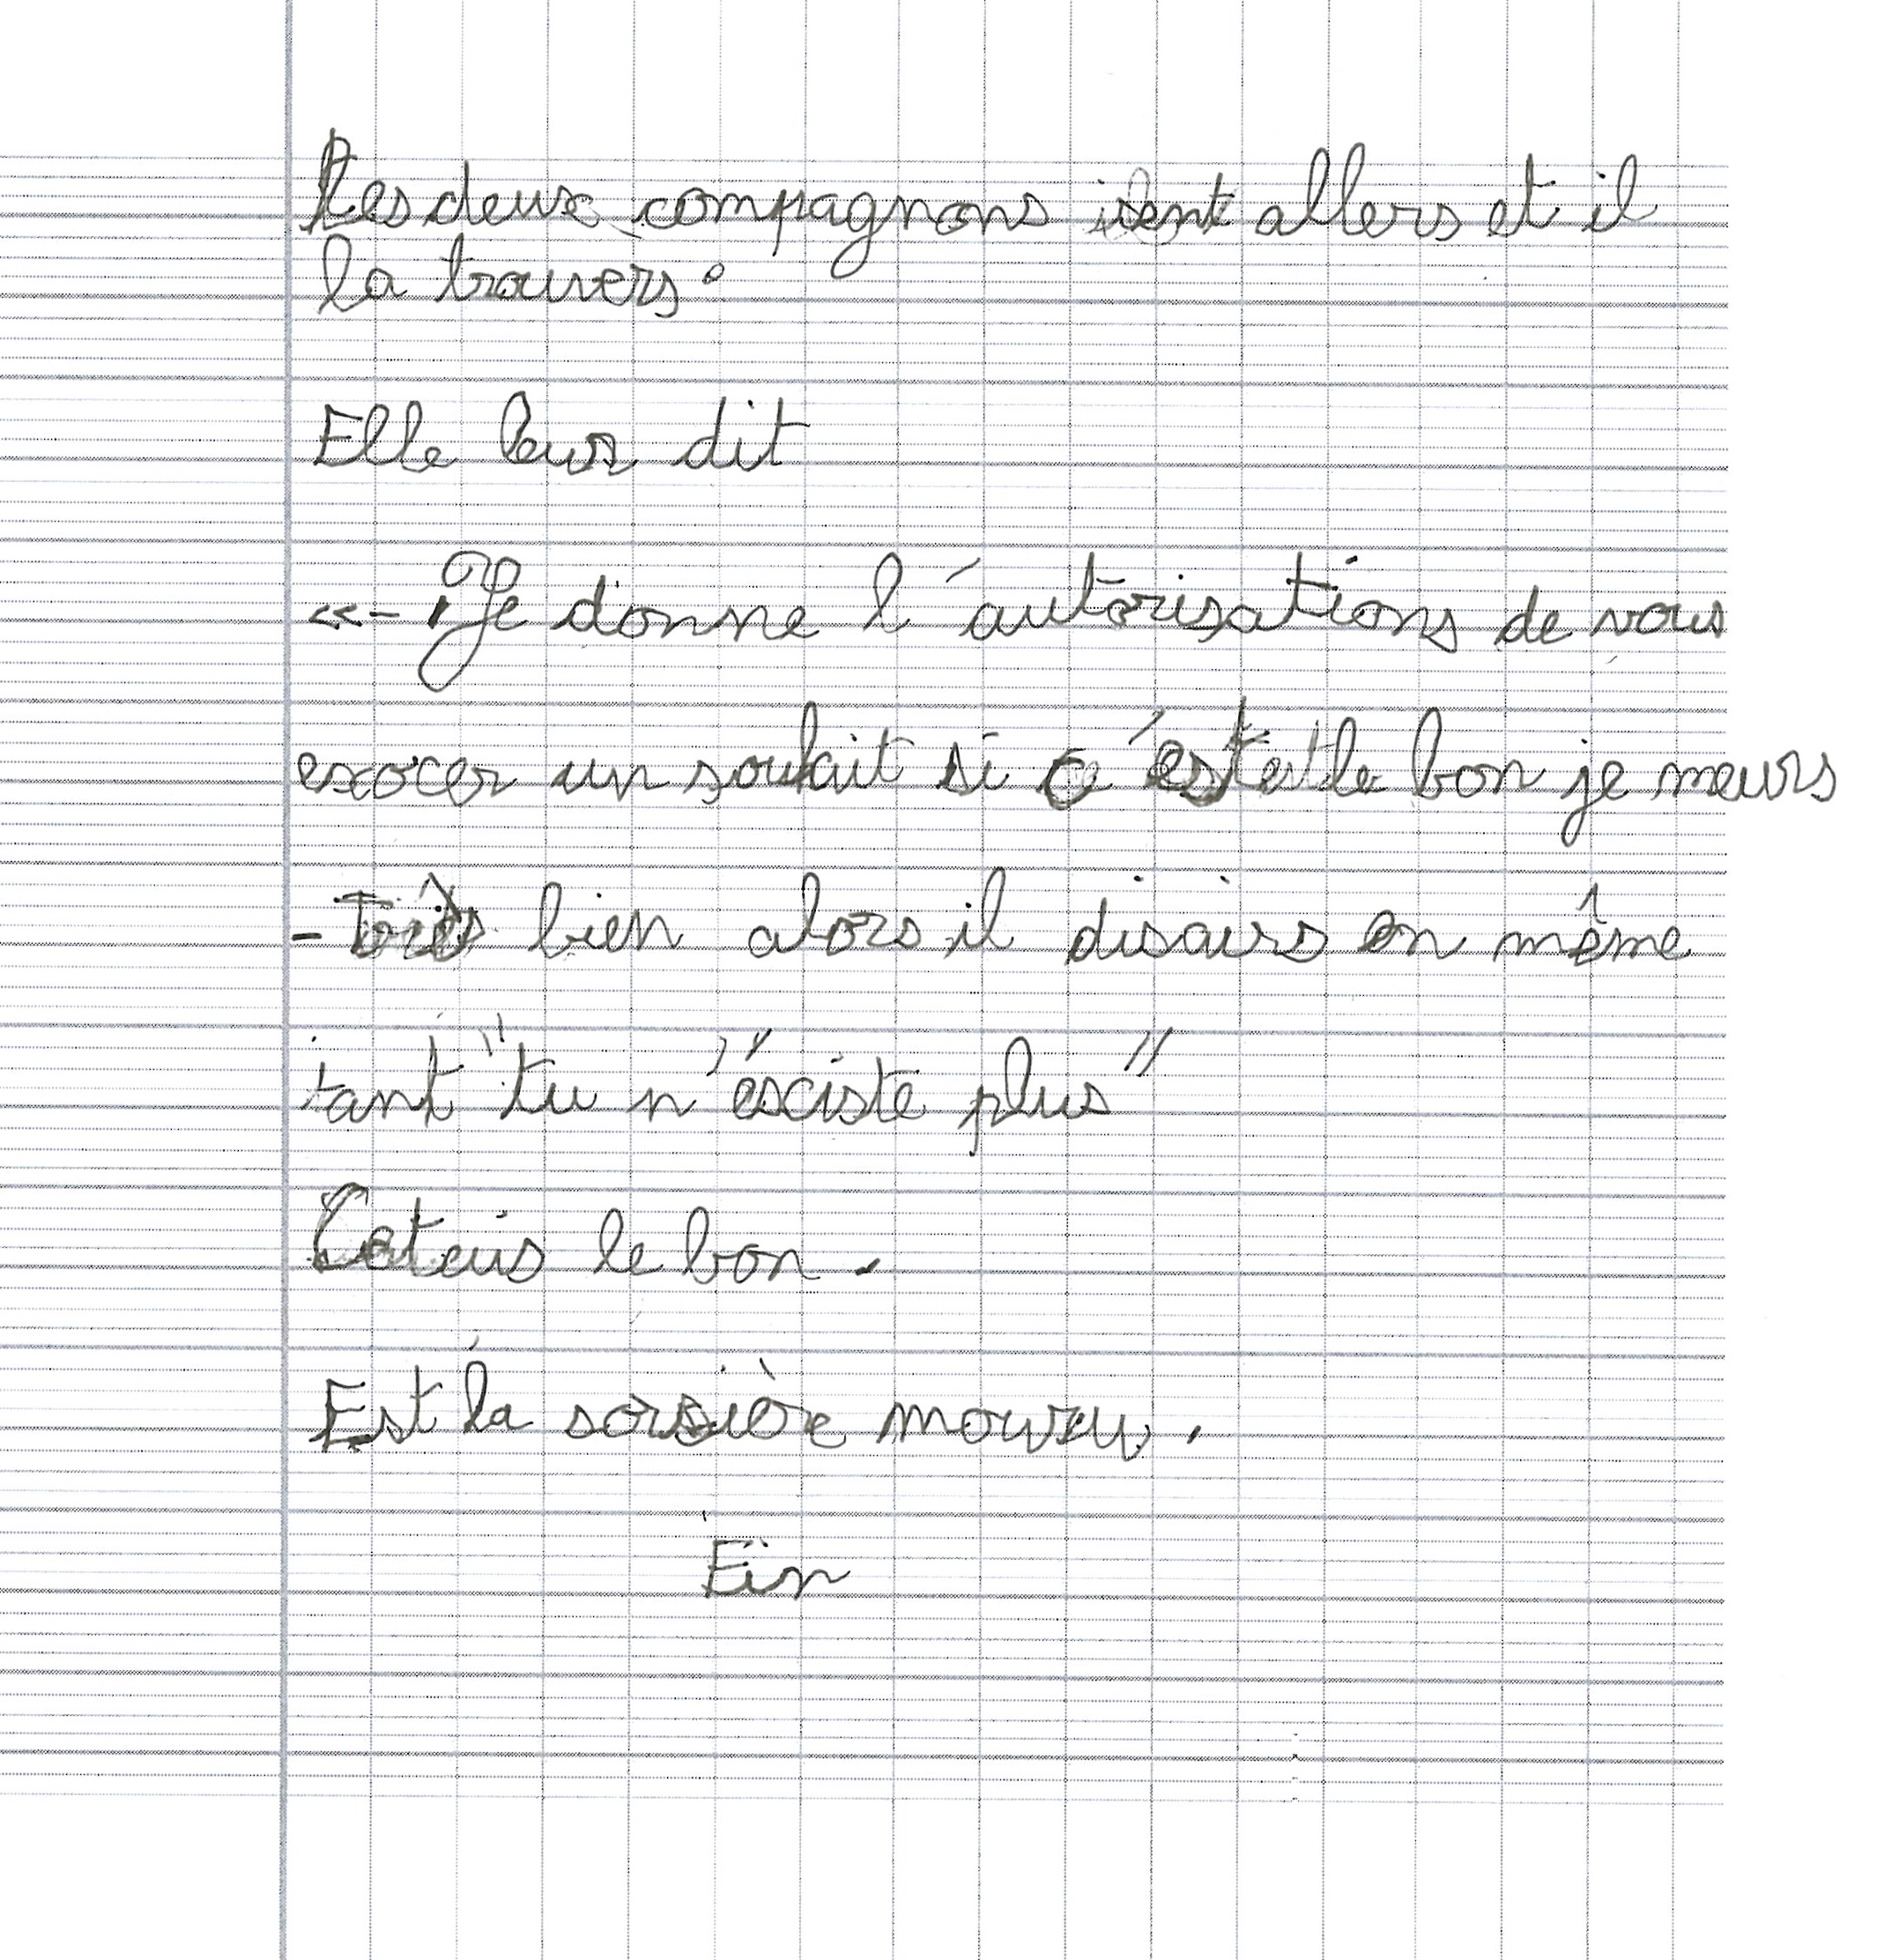 Les deux compagnons allers et il
la trouvers.
Elle leur dit
«- Je donne l'autorisations de vous
exocer un souhait si c'est le bon je meurs
- Très bien alors il disairs en même
tant "tu n'éxciste plus"
Cetais le bon.
Est la sorsière mouru.
Fin